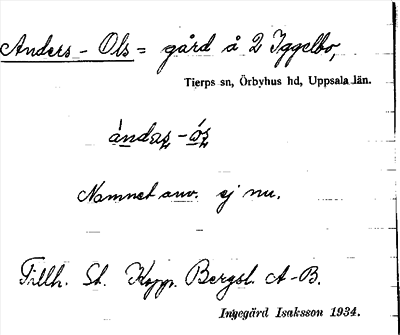 Anders-Ols = gård å 2 Iggelbo,
Tierps sn, Örbyhus hd, Uppsala län.
àndaʂ-óʂ
Namnet anv. ej nu.
Tillh. St. Kopp. Bergsl. A-B.
Ingegärd Isaksson 1934.